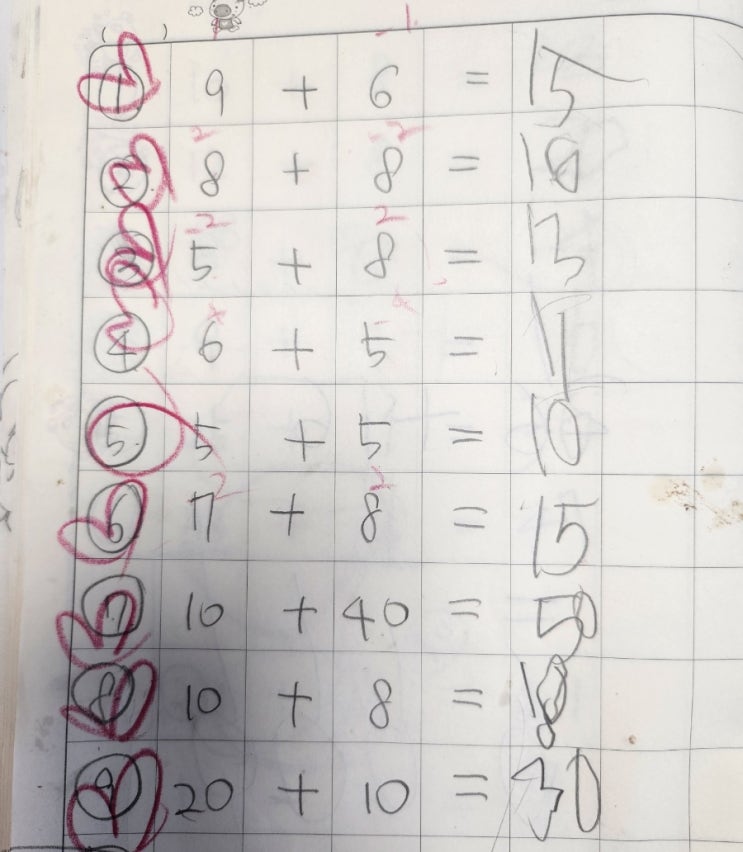 ① 9 + 6 = 15
② 8 + 8 = 18
③ 5 + 8 = 13
④ 6 + 5 = 11
⑤ 5 + 5 = 10
⑥ 7 + 8 = 15
⑦ 10 + 40 = 50
⑧ 10 + 8 = 18
⑨ 20 + 10 = 30